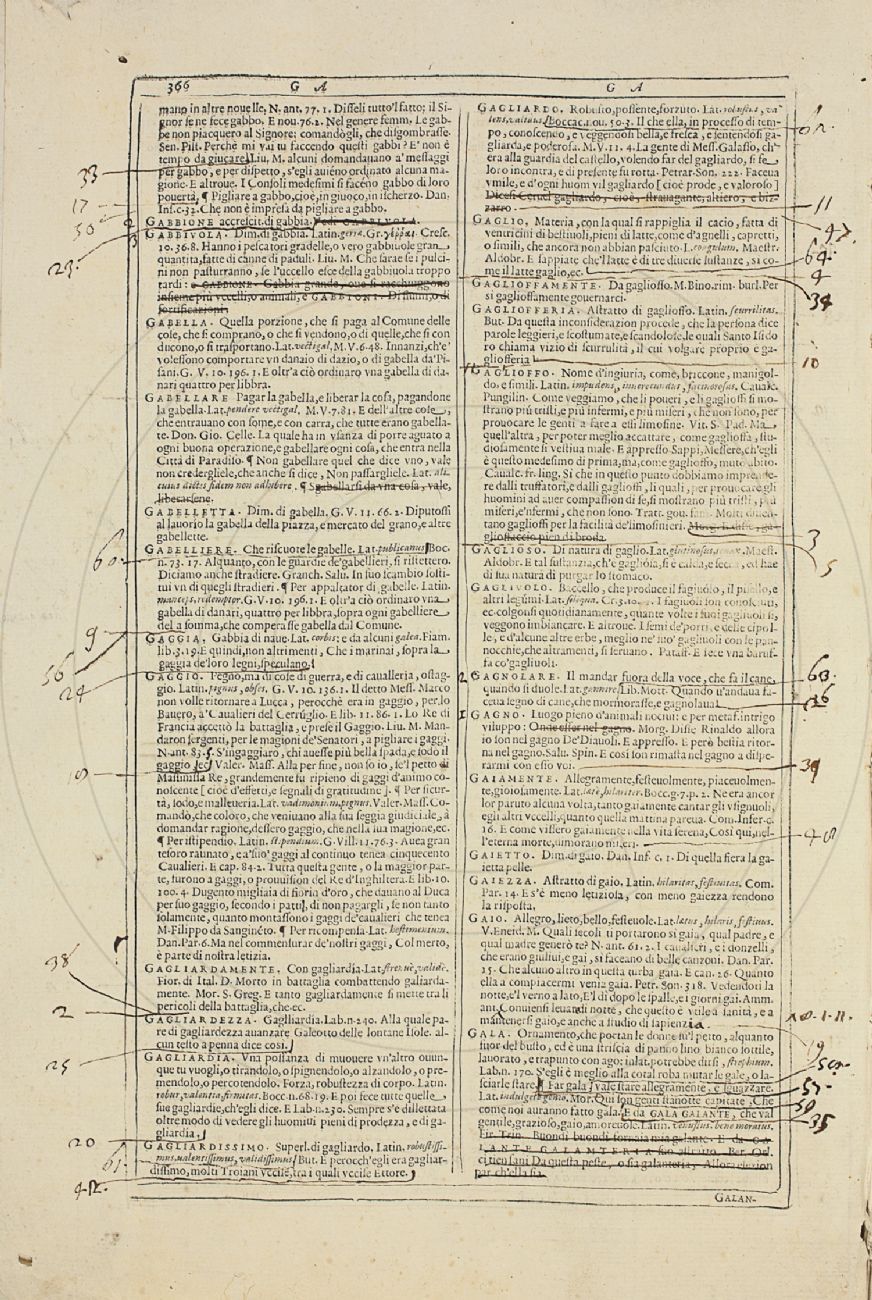 366 G A G A
mano in altre nouelle, N. ant. 77. 1. Disseli tutto'l fatto; il Si-
gnor se ne fece gabbo. E nou. 76. 2. Nel genere femm. Le gab-
be non piacquero al Signore; comandògli, che disgombrasse.
Sen. Pist. Perchè mi vai tu faccendo questi gabbi? E' non è
tempo da giucare. Liu. M. alcuni domandauano a' messaggi
per gabbo, e per dispetto, s'egli auiéno ordinato alcuna ma-
gione. E altroue. I Consoli medesimi si facéno gabbo di loro
pouertà. ¶ Pigliare a gabbo, cioè, in giuoco, in ischerzo. Dan.
Inf. c. 32. Che non è impresa da pigliare a gabbo.
GABBIONE accrescit. di gabbia. Vedi GABBIVOLA.
GABBIVOLA. Dim. di gabbia. Latin. Gr. Cresc.
10. 36. 8. Hanno i pescatori gradelle, o vero gabbiuole gran
quantita, fatte di canne di paduli. Liu. M. Che sarae se i pulci-
ni non pasturranno, se l'uccello esce della gabbiuola troppo
tardi: e GABBIONE. Gabbia grande, oue si racchiuggono
insieme più vccelli, o animali, e GABBIONI. Di fiumi, o di
fortificazioni.
GABELLA. Quella porzione, che si paga al Comune delle
cose, che si comprano, o che si vendono, o di quelle, che si con
ducono, o si trasportano. Lat. vectigal, M. V. 6. 48. Innanzi, ch'e'
volessono comportare vn danaio di dazio, o di gabella da'Pi-
sani. G. V. 10. 196. 1. E oltr'a ciò ordinaro vna gabella di da-
nari quattro per libbra.
GABELLARE Pagar la gabella, e liberar la cosa, pagandone
la gabella. Lat. pendere vectigal, M. V. 7. 81. E dell'altre cose,
che entrauano con some, e con carra, che tutte erano gabella-
te. Don. Gio. Celle. La quale ha in vsanza di porre aguato a
ogni buona operazione, e gabellare ogni cosa, che entra nella
Città di Paradiso. ¶ Non gabellare quel che dice vno, vale
non credergliele, che anche si dice, Non passargliele. Lat. ali-
cuius dictis fidem non adhibere. ¶ Sgabellarsi da vna cosa, vale,
liberarsene.
GABELLETTA. Dim. di gabella. G. V. 11. 66. 2. Diputossi
al lauorio la gabella della piazza, e mercato del grano, e altre
gabellette.
GABELLIERE. Che riscuote le gabelle. Lat. publicanus Boc.
n. 73. 17. Alquanto, con le guardie de'gabellieri, si ristettero.
Diciamo anche stradiere. Granch. Salu. In suo scambio sosti-
tui vn di quegli stradieri. ¶ Per appaltator di gabelle. Latin.
manceps, redemptor. G. V. 10. 196. 1. E oltr'a ciò ordinaro vna
gabella di danari, quattro per libbra, sopra ogni gabelliere
del a somma, che comperasse gabella dal Comune.
GAGGIA. Gabbia di naue. Lat. corbis: e da alcuni galea. Fiam.
lib. 3. 19. E quindi, non altrimenti, Che i marinai, sopra la
gaggia de'loro legni, speculano.
GAGGIO. Pegno, ma di cose di guerra, e di cauallerìa, ostag-
gio. Latin. pignus, obses. G. V. 10. 136. 1. Il detto Mess. Marco
non volle ritornare a Lucca, perocchè era in gaggio, per lo
Bauero, a'Caualieri del Cerruglio. E lib. 11. 86. 1. Lo Re di
Francia accettò la battaglia, e prese il Gaggio. Liu. M. Man-
daron sergenti, per le magioni de'Senatori, a pigliare i gaggi.
N. ant. 83. 5. S'ingaggiaro, chi auesse più bella spada, e sodo il
gaggio, ec. Valer. Mass. Alla per fine, non so io, se'l petto di
Massinissa Re, grandemente fu ripieno di gaggi d'animo co-
noscente [ cioè d'effetti, e segnali di gratitudine ]. ¶ Per sicur-
tà, sodo, e malleueria. Lat. vadimonium, pignus. Valer. Mass. Co-
mandò, che coloro, che veniuano alla sua seggia giudiciale, à
domandar ragione, dessero gaggio, che nella sua magione, ec.
¶ Per istipendio. Latin. stipendium. G. Vill. 11. 76. 3. Auea gran
tesoro raunato, e a'suo' gaggi al continuo tenea cinquecento
Caualieri. E cap. 84. 2. Tutta questa gente, o la maggior par-
te, furono a gaggi, o prouuision del Re d'Inghilterra. E lib. 10.
100. 4. Dugento migliaia di fiorin d'oro, che dauano al Duca
per suo gaggio, secondo i patti, di non pagargli, se non tanto
solamente, quanto montassono i gaggi de'caualieri che tenea
M. Filippo da Sanginéto. ¶ Per ricompensa. Lat. hostimentum.
Dan. Par. 6. Ma nel commensurar de'nostri gaggi, Col merto,
è parte di nostra letizia.
GAGLIARDAMENTE. Con gagliardìa. Lat. strenuè, validè.
Fior. di Ital. D. Morto in battaglia combattendo galiarda-
mente. Mor. S. Greg. E tanto gagliardamente si mette tra li
pericoli della battaglia, che. ec.
GAGLIARDEZZA. Gagliardìa. Lab. n. 240. Alla quale pa-
re di gagliardezza auanzare Galeotto delle lontane Isole. al-
cun testo a penna dice così.
GAGLIARDIA. Vna possanza di muouere vn'altro ouun-
que tu vuogli, o tirandolo, o spignendolo, o alzandolo, o pre-
mendolo, o percotendolo. Forza, robustezza di corpo. Latin.
robur, valentia, firmitas. Bocc. n. 68. 19. E poi fece tutte quelle
sue gagliardìe, ch'egli dice. E Lab. n. 230. Sempre s'è dilettata
oltre modo di vedere gli huomini pieni di prodezza, e di ga-
gliardia,
GAGLIARDISSIMO. Superl. di gagliardo. Latin. robustissi-
mus, valentissimus, validissimus. But. E perocch'egli era gagliar-
dissimo, molti Troiani vccise, tra i quali vccise Ettore.
33
17
50
23
60
9
56
24
38
2
25
20
61
42
GAGLIARDO. Robusto, possente, forzuto. Lat. robustus, va-
lens, validus. Boccac. nou. 50. 3. Il che ella, in processo di tem-
po, conoscendo, e veggendosi bella, e fresca, e sentendosi ga-
gliarda, e poderosa. M. V. 11. 4. La gente di Mess. Galasso, ch'
era alla guardia del castello, volendo far del gagliardo, si fe
loro incontra, e di presente fu rotta. Petrar. Son. 222. Faceua
vmile, e d'ogni huom vil gagliardo [ cioè prode, e valoroso ]
Dicesi Ceruel gagliardo, cioè, strauagante, altiero, e biz-
zarro.
GAGLIO. Materia, con la qual si rappiglia il cacio, fatta di
ventricini di bestiuoli, pieni di latte, come d'agnelli, capretti,
o simili, che ancora non abbian pasciuto. L. coagulum. Maestr.
Aldobr. E sappiate che'l latte è di tre diuerse sustanze, sì co-
me il latte gaglio, ec.
GAGLIOFFAMENTE. Da gaglioffo. M. Bino. rim. burl. Per
sì gaglioffamente gouernarci.
GAGLIOFFERIA. Astratto di gaglioffo. Latin. scurrilitas.
But. Da questa inconsiderazion procede, che la persona dice
parole leggieri, e scostumate, e scandolose, le quali Santo Isido
ro chiama vizio di scurrulità, il cui volgare proprio è ga-
glioffería
GAGLIOFFO. Nome d'ingiuria, come, briccone, manigol-
do, e simili. Latin. impudens, inverecundus, facinorosus. Caualc.
Pungilin. Come veggiamo, che li poueri, e li gaglioffi si mo-
strano più tristi, e più infermi, e più miseri, che non sono, per
prouocare le genti a fare a essi limosine. Vit. S. Pad. Ma
quell'altra, per poter meglio accattare, come gaglioffa, stu-
diosamente si vestiua male. E appresso. Sappi, Messere, ch'egli
è quello medesimo di prima, ma, come gaglioffo, muto abito.
Caualc. fr. ling. Sì che in questo punto dobbiamo imprende-
re dalli truffatori, e dalli gaglioffi, li quali, per prouocare gli
huomini ad auer compassion di se, si mostrano più tristi, più
miseri, e'nfermi, che non sono. Tratt. gou. fam. Molti diuen-
tano gaglioffi per la facilità de'limosinieri. Morg. E disse, ga-
glioffaccio pien di broda.
GAGLIOSO. Di natura di gaglio. Lat. glutinosus, tenax. Maest.
Aldobr. E tal sustanzia, ch'è gagliosa, si è calda, e secca, ed hae
di sua natura di purgar lo stomaco.
GAGLIVOLO. Baccello, che produce il fagiuolo, il pisello, e
altri legumi. Lat. siliqua. Cr. 3. 10. I fagiuoli son conosciuti,
ec. colgonsi quotidianamente, quante volte i suoi gagliuoli si
veggono imbiancare. E altroue. I semi de'porri, e delle cipol-
le, e d'alcune altre erbe, meglio ne' suo' gagliuoli con le pan-
nocchie, che altramenti, si seruano. Pataff. E fece vna baruf-
fa co'gagliuoli.
GAGNOLARE. Il mandar fuora della voce, che fa il cane,
quando si duole. Lat. gannire. Lib. Mott. Quando n'andaua fa-
ceua segno di cane, che mormorasse, e gagnolaua
GAGNO. Luogo pieno d'animali nociui: e per metaf. intrigo
viluppo: Onde esser nel gagno. Morg. Disse Rinaldo allora
io son nel gagno De'Diauoli. E appresso. E però bestia ritor-
na nel gagno. Salu. Spin. E così son rimasta nel gagno a dispe-
rarmi con esso voi.
GAIAMENTE. Allegramente, festeuolmente, piaceuolmen-
te, gioiosamente. Lat. latè, hilariter. Bocc. g. 7. p. 2. Ne era ancor
lor paruto alcuna volta, tanto gaiamente cantar gli vsignuoli,
e gli altri vccelli, quanto quella mattina pareua. Com. Infer. c.
16. E come vissero gaiamente nella vita serena, Così qui, nel-
l'eterna morte, dimorano miseri.
GAIETTO. Dim. di gaio. Dan. Inf. c. 1. Di quella fiera la ga-
ietta pelle.
GAIEZZA. Astratto di gaio. Latin. hilaritas, festiuitas. Com.
Par. 14. Es'è meno letiziosa, con meno gaiezza rendono
la risposta.
GAIO. Allegro, lieto, bello, festeuole. Lat. latus, hilaris, festiuus.
V. Eneid. M. Quali secoli ti portarono sì gaia, qual padre, e
qual madre generò te? N. ant. 61. 2. I caualieri, e i donzelli,
che erano giuliui, e gai, si faceano di belle canzoni. Dan. Par.
15. Che alcuno altro in questa turba gaia. E can. 26. Quanto
ella a compiacermi venia gaia. Petr. Son. 318. Vedendosi la
notte, e'l verno a lato, E'l dì dopo le spalle, e i giorni gai. Amm.
ant. Conuiensi leuarsi di notte, che questo è vtile a sanità, e a
mantenersi gaio, e anche a studio di sapienzia.
GALA. Ornamento, che portan le donne su'l petto, alquanto
fuor del busto, ed è vna striscia di panno lino bianco sottile,
lauorato, e trapunto con ago: in lat. potrebbe dirsi, strophium.
Lab. n. 170. S'egli è meglio alla cotal roba mutar le gale, o la-
sciarle stare. ¶ Far gala vale stare allegramente, e sguazzare.
Lat. indulgere genio. Mor. Qui son genti stanotte capitate, Che
come noi auranno fatto gala. E da GALA GALANTE, che val
gentile, grazioso, gaio, amoreuole. Latin. venustus, bene moratus.
Fir. Trin. Buondì buondì fornaia mia galante. E da GA-
LANTE GALANTERIA suo astratto. Ber. Orl.
ci tien sani Da questa peste, o sia galanteria, Allora elezion
par ch'ella sia.
11
47
64
4
34
10
3
5
63
36
39
48
19
50
35
GALAN-